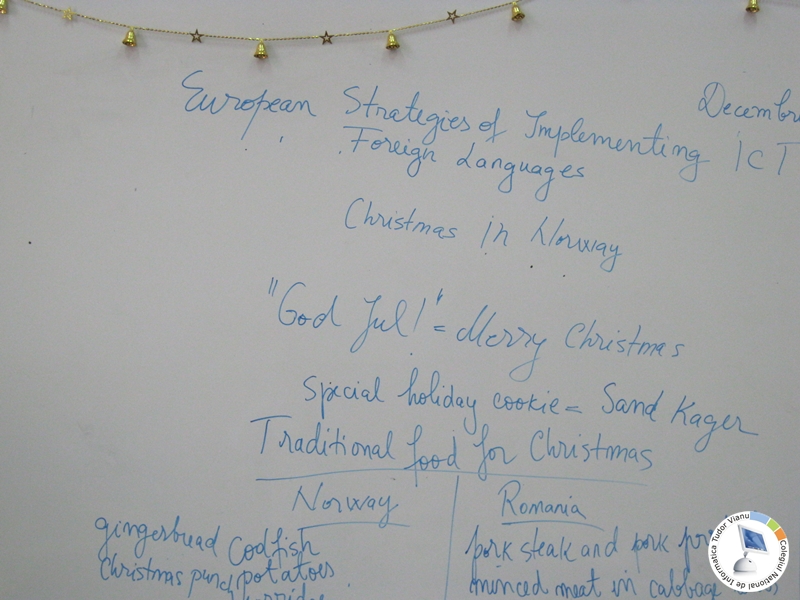 Decembr
European Strategies of Implementing ICT
Foreign Languages
Christmas in Norway
"God Jul!" = Merry Christmas
Special holiday cookie = Sand Kager
Traditional food for Christmas
Norway Romania
gingerbread codfish pork steak and pork
Christmas punch potatoes minced meat in cabbage
Colegiul National de Informatica Tudor Vianu